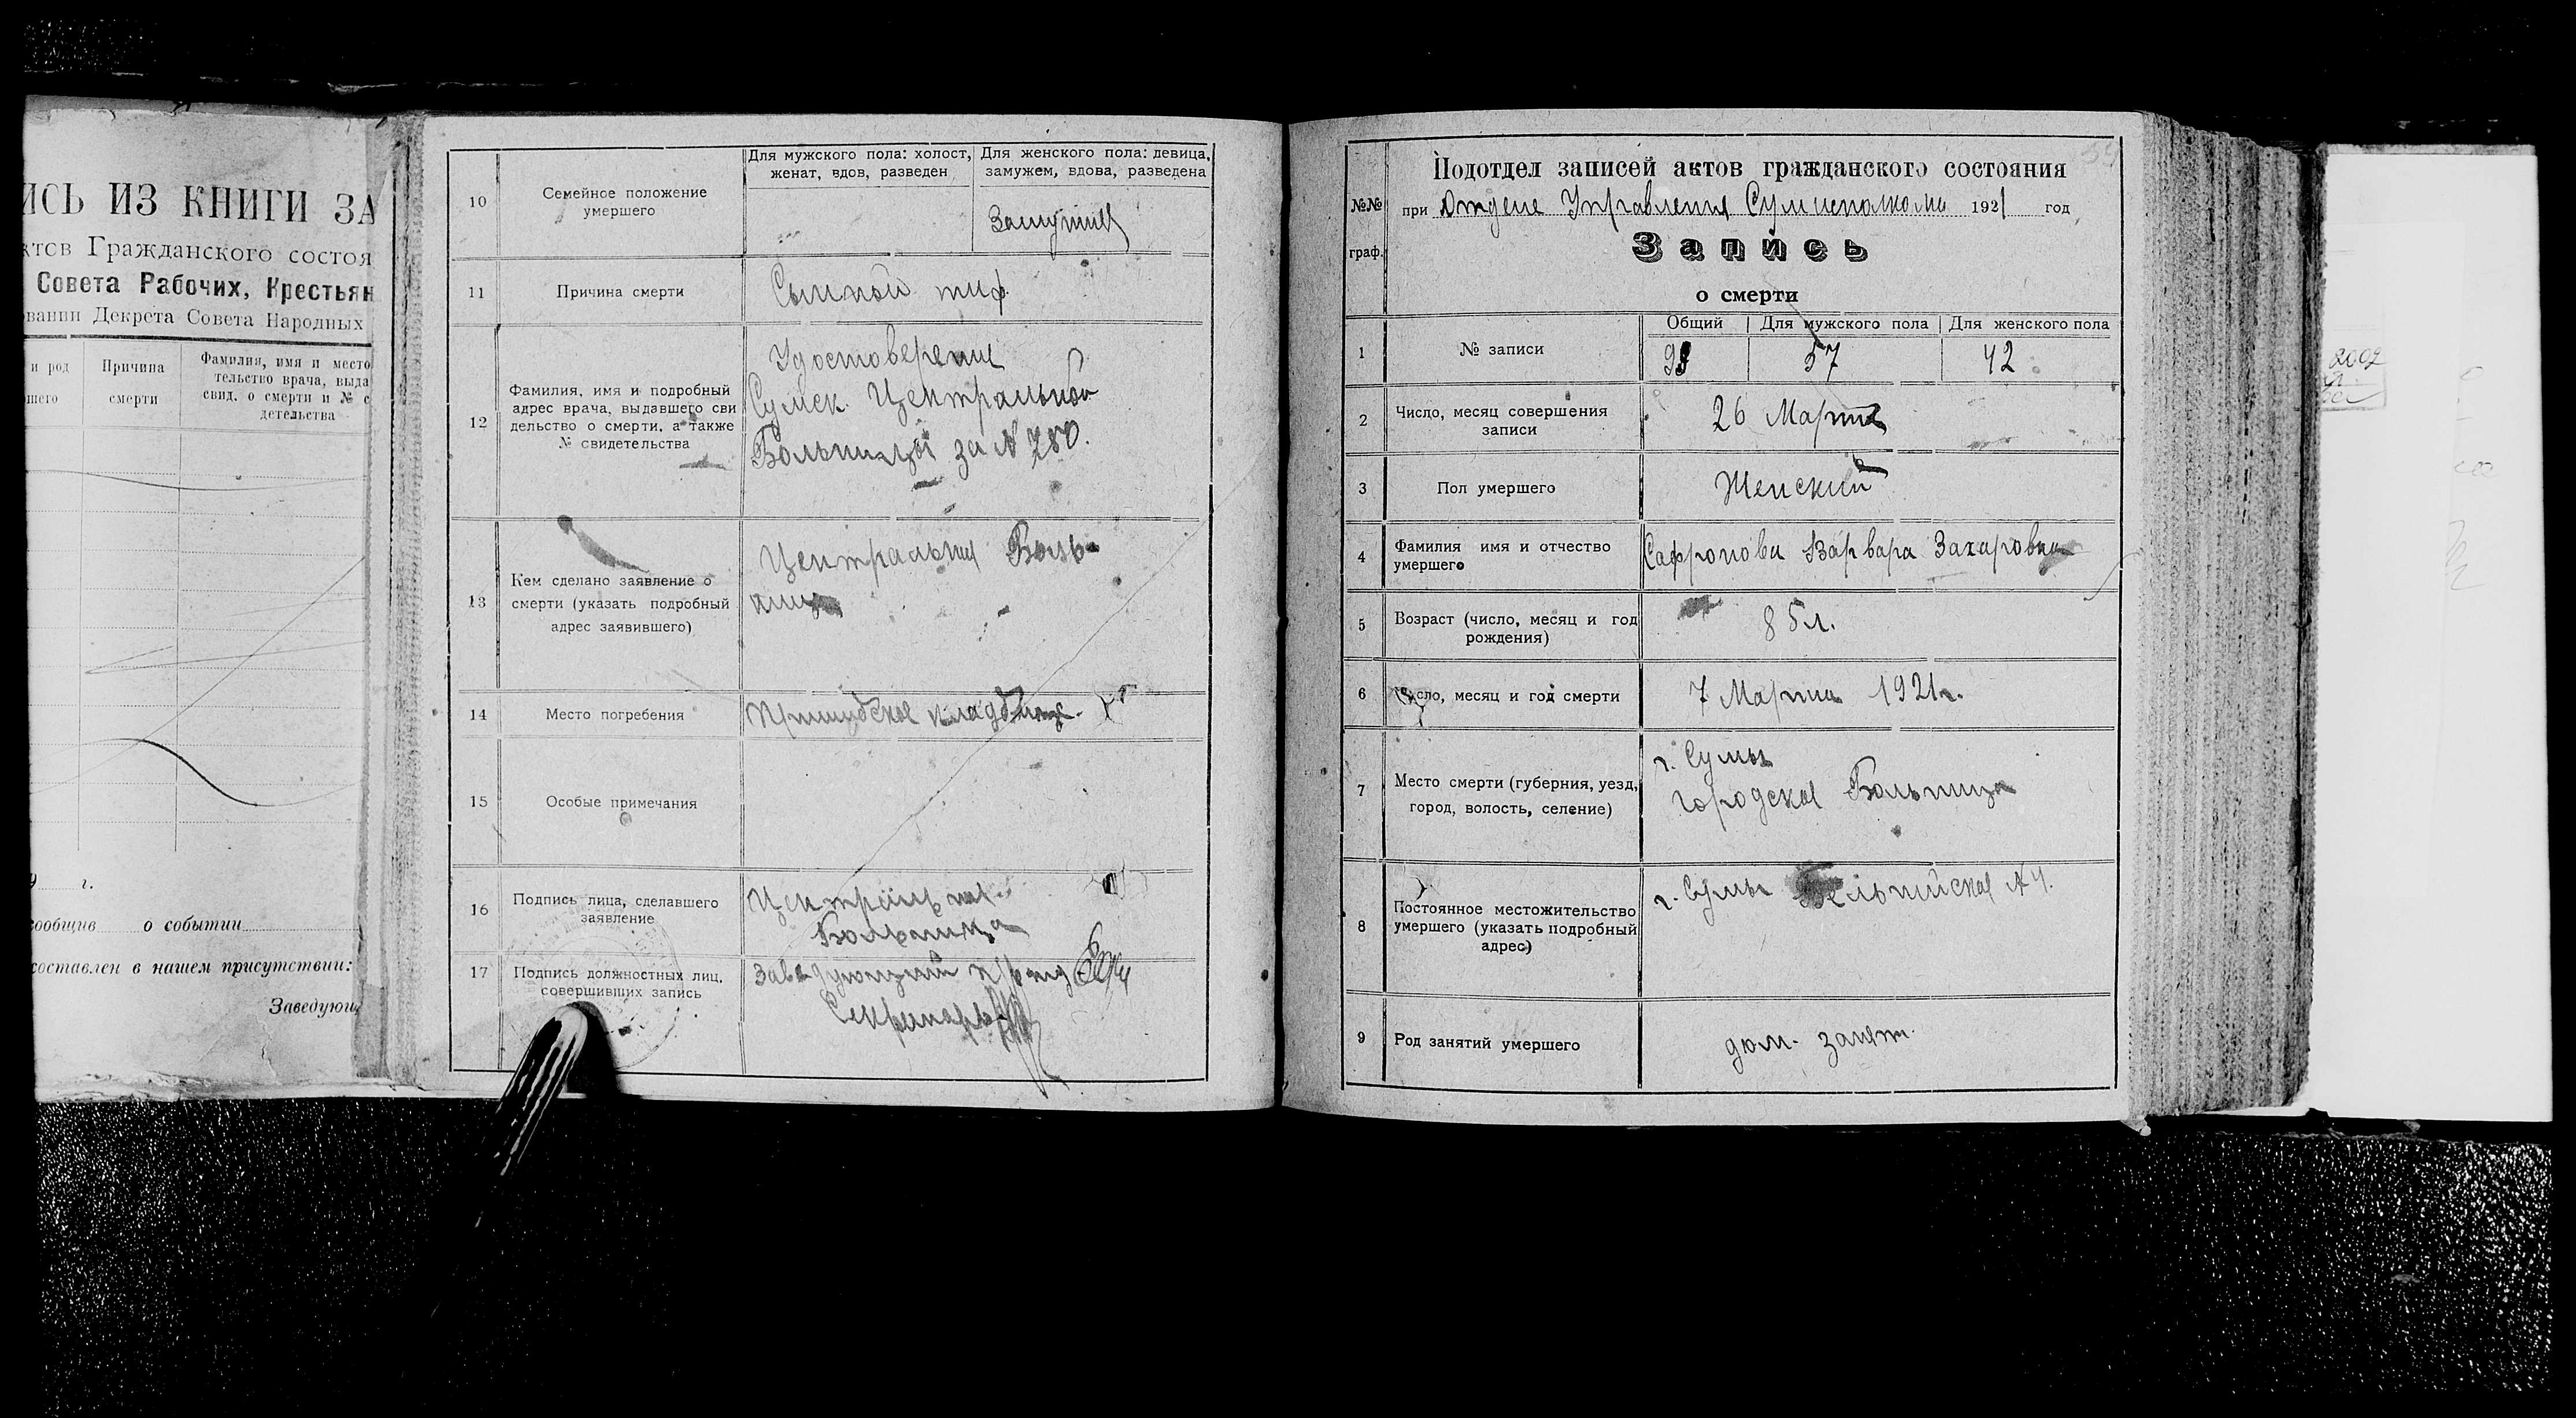 ИСЬ ИЗ КНИГИ ЗА
ктов Гражданского состоя
Совета Рабочих, Крестьян
овании Декрета Совета Народных
и род
шего
Причина
смерти
Фамилия, имя и место
тельство врача, выда
свид. о смерти и № с
детельства
г.
сообщив о событии
составлен в нашем присутствии:
Заведующ
10
Семейное положение
умершего
Для мужского пола: холост,
женат, вдов, разведен
Для женского пола: девица,
замужем, вдова, разведена
Замужняя
11
Причина смерти
Сыпной тиф.
12
Фамилия, имя и подробный
адрес врача, выдавшего сви
дельство о смерти, а также
№ свидетельства
Удостоверение
Сумск. Центральной
Больницы за № 780.
13
Кем сделано заявление о
смерти (указать подробный
адрес заявившего)
Центральная Боль-
ница
14
Место погребения
кладбище.
15
Особые примечания
16
Подпись лица, сделавшего
заявление
Центральная
Больница
17
Подпись должностных лиц,
совершивших запись
Заведующий
Секретарь
№№
граф.
Подотдел записей актов гражданского состояния
при Отделе Управления Сумисполкома 1921 год
Запись
о смерти
1
№ записи
Общий
Для мужского пола
Для женского пола
57
42
2
Число, месяц совершения
записи
26 Марта
3
Пол умершего
Женский
4
Фамилия имя и отчество
умершего
Сафронова Варвара Захаровна
5
Возраст (число, месяц и год
рождения)
85 л.
6
Число, месяц и год смерти
7 Марта 1921 г.
7
Место смерти (губерния, уезд,
город, волость, селение)
г. Сумы
городская Больница
8
Постоянное местожительство
умершего (указать подробный
адрес)
г. Сумы Бельгийская № 4.
9
Род занятий умершего
дом. занят.
2002